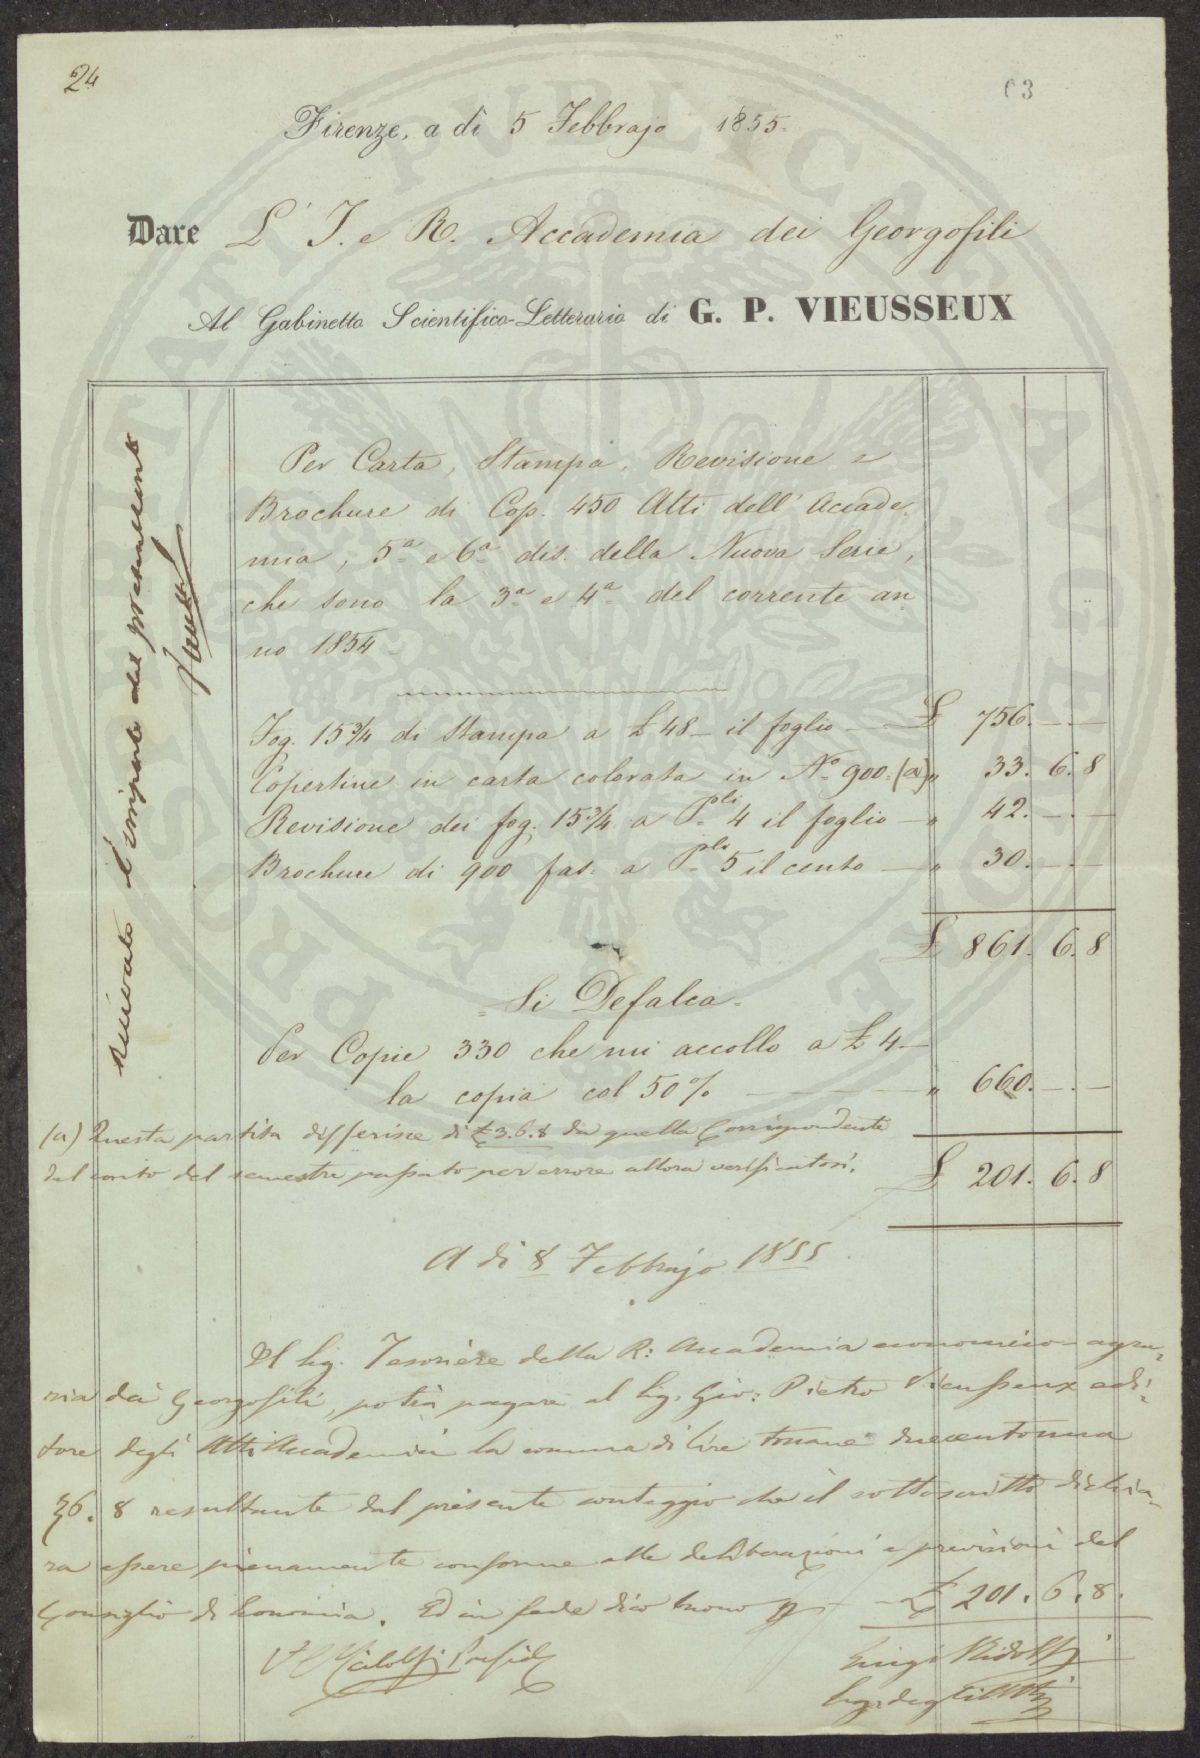 24
63
Firenze, a dì 5 Febbrajo 1855.
Dare L' I. e R. Accademia dei Georgofili
Al Gabinetto Scientifico-Letterario di G. P. VIEUSSEUX
Per Carta, Stampa, Revisione e
Brochure di Cop. 450 Atti dell' Accade
mia, 5ª e 6ª dis. della Nuova Serie,
che sono la 3ª e 4ª del corrente an
no 1854
Fog. 15 3/4 di Stampa a £ 48 — il foglio — £ 756. — . —
Copertine in carta colorata in Nº 900. (a) " 33. 6. 8
Revisione dei fog. 15 3/4 a Pli 4 il foglio — " 42. — . —
Brochure di 900 fas. a Pli 5 il cento — " 30. — . —
£ 861. 6. 8
Si Defalca
Per Copie 330 che mi accollo a £ 4 —
la copia col 50 % — " 660. — . —
£ 201. 6. 8
(a) Questa partita differisce di £ 3. 6. 8 da quella corrispondente
del conto del semestre passato per errore allora verificatosi.
Ricevuto l'importo del presente
Vieusseux
A dì 8 Febbrajo 1855
Il Sig. Tesoriere della R: Accademia economico-agra-
ria dei Georgofili, potrà pagare al Sig. Gio: Pietro Vieusseux edi-
tore degli Atti Accademici la somma di lire toscane duecentouna
6. 8 resultante dal presente conteggio che il sottoscritto dichia-
ra essere pienamente conforme alle deliberazioni e previsioni del
Consiglio di Economia. Ed in fede dico buono p £ 201. 6. 8.
Ridolfi Presid
Luigi Ridolfi
Seg. degli Atti
PROSPERITATI PVBLICAE AVGENDAE